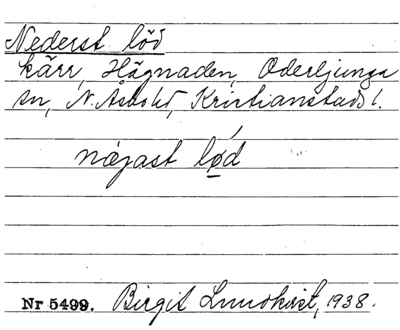 Nederst löd
kärr, Hägnaden, Oderljunga
sn, N. Åsbo hd, Kristianstads l.
nœjast lød
Nr 5499. Birgit Lundkvist, 1938.